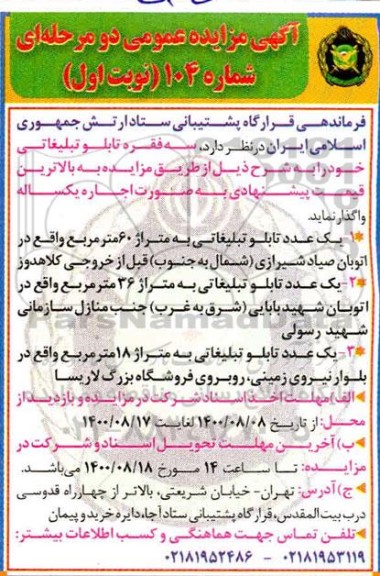 آگهی مزایده عمومی دو مرحله‌ای
شماره ۱۰۴ (نوبت اول)
فرماندهی قرارگاه پشتیبانی ستاد ارتش جمهوری
اسلامی ایران در نظر دارد، سه فقره تابلو تبلیغاتی
خود را به شرح ذیل از طریق مزایده به بالاترین
قیمت پیشنهادی به صورت اجاره یکساله
واگذار نماید.
۱- یک عدد تابلو تبلیغاتی به متراژ ۶۰ متر مربع واقع در
اتوبان صیاد شیرازی (شمال به جنوب) قبل از خروجی کلاهدوز
۲- یک عدد تابلو تبلیغاتی به متراژ ۳۶ متر مربع واقع در
اتوبان شهید بابایی (شرق به غرب) جنب منازل سازمانی
شهید رسولی
۳- یک عدد تابلو تبلیغاتی به متراژ ۱۸ متر مربع واقع در
بلوار نیروی زمینی، روبروی فروشگاه بزرگ لاریسا
الف) مهلت اخذ اسناد شرکت در مزایده و بازدید از
محل: از تاریخ ۱۴۰۰/۰۸/۰۸ لغایت ۱۴۰۰/۰۸/۱۷
ب) آخرین مهلت تحویل اسناد و شرکت در
مزایده: تا ساعت ۱۴ مورخ ۱۴۰۰/۰۸/۱۸ می‌باشد.
ج) آدرس: تهران- خیابان شریعتی، بالاتر از چهارراه قدوسی
درب بیت المقدس، قرارگاه پشتیبانی ستاد آجا، دایره خرید و پیمان
تلفن تماس جهت هماهنگی و کسب اطلاعات بیشتر:
۰۲۱۸۱۹۵۳۱۱۹ - ۰۲۱۸۱۹۵۲۴۸۶